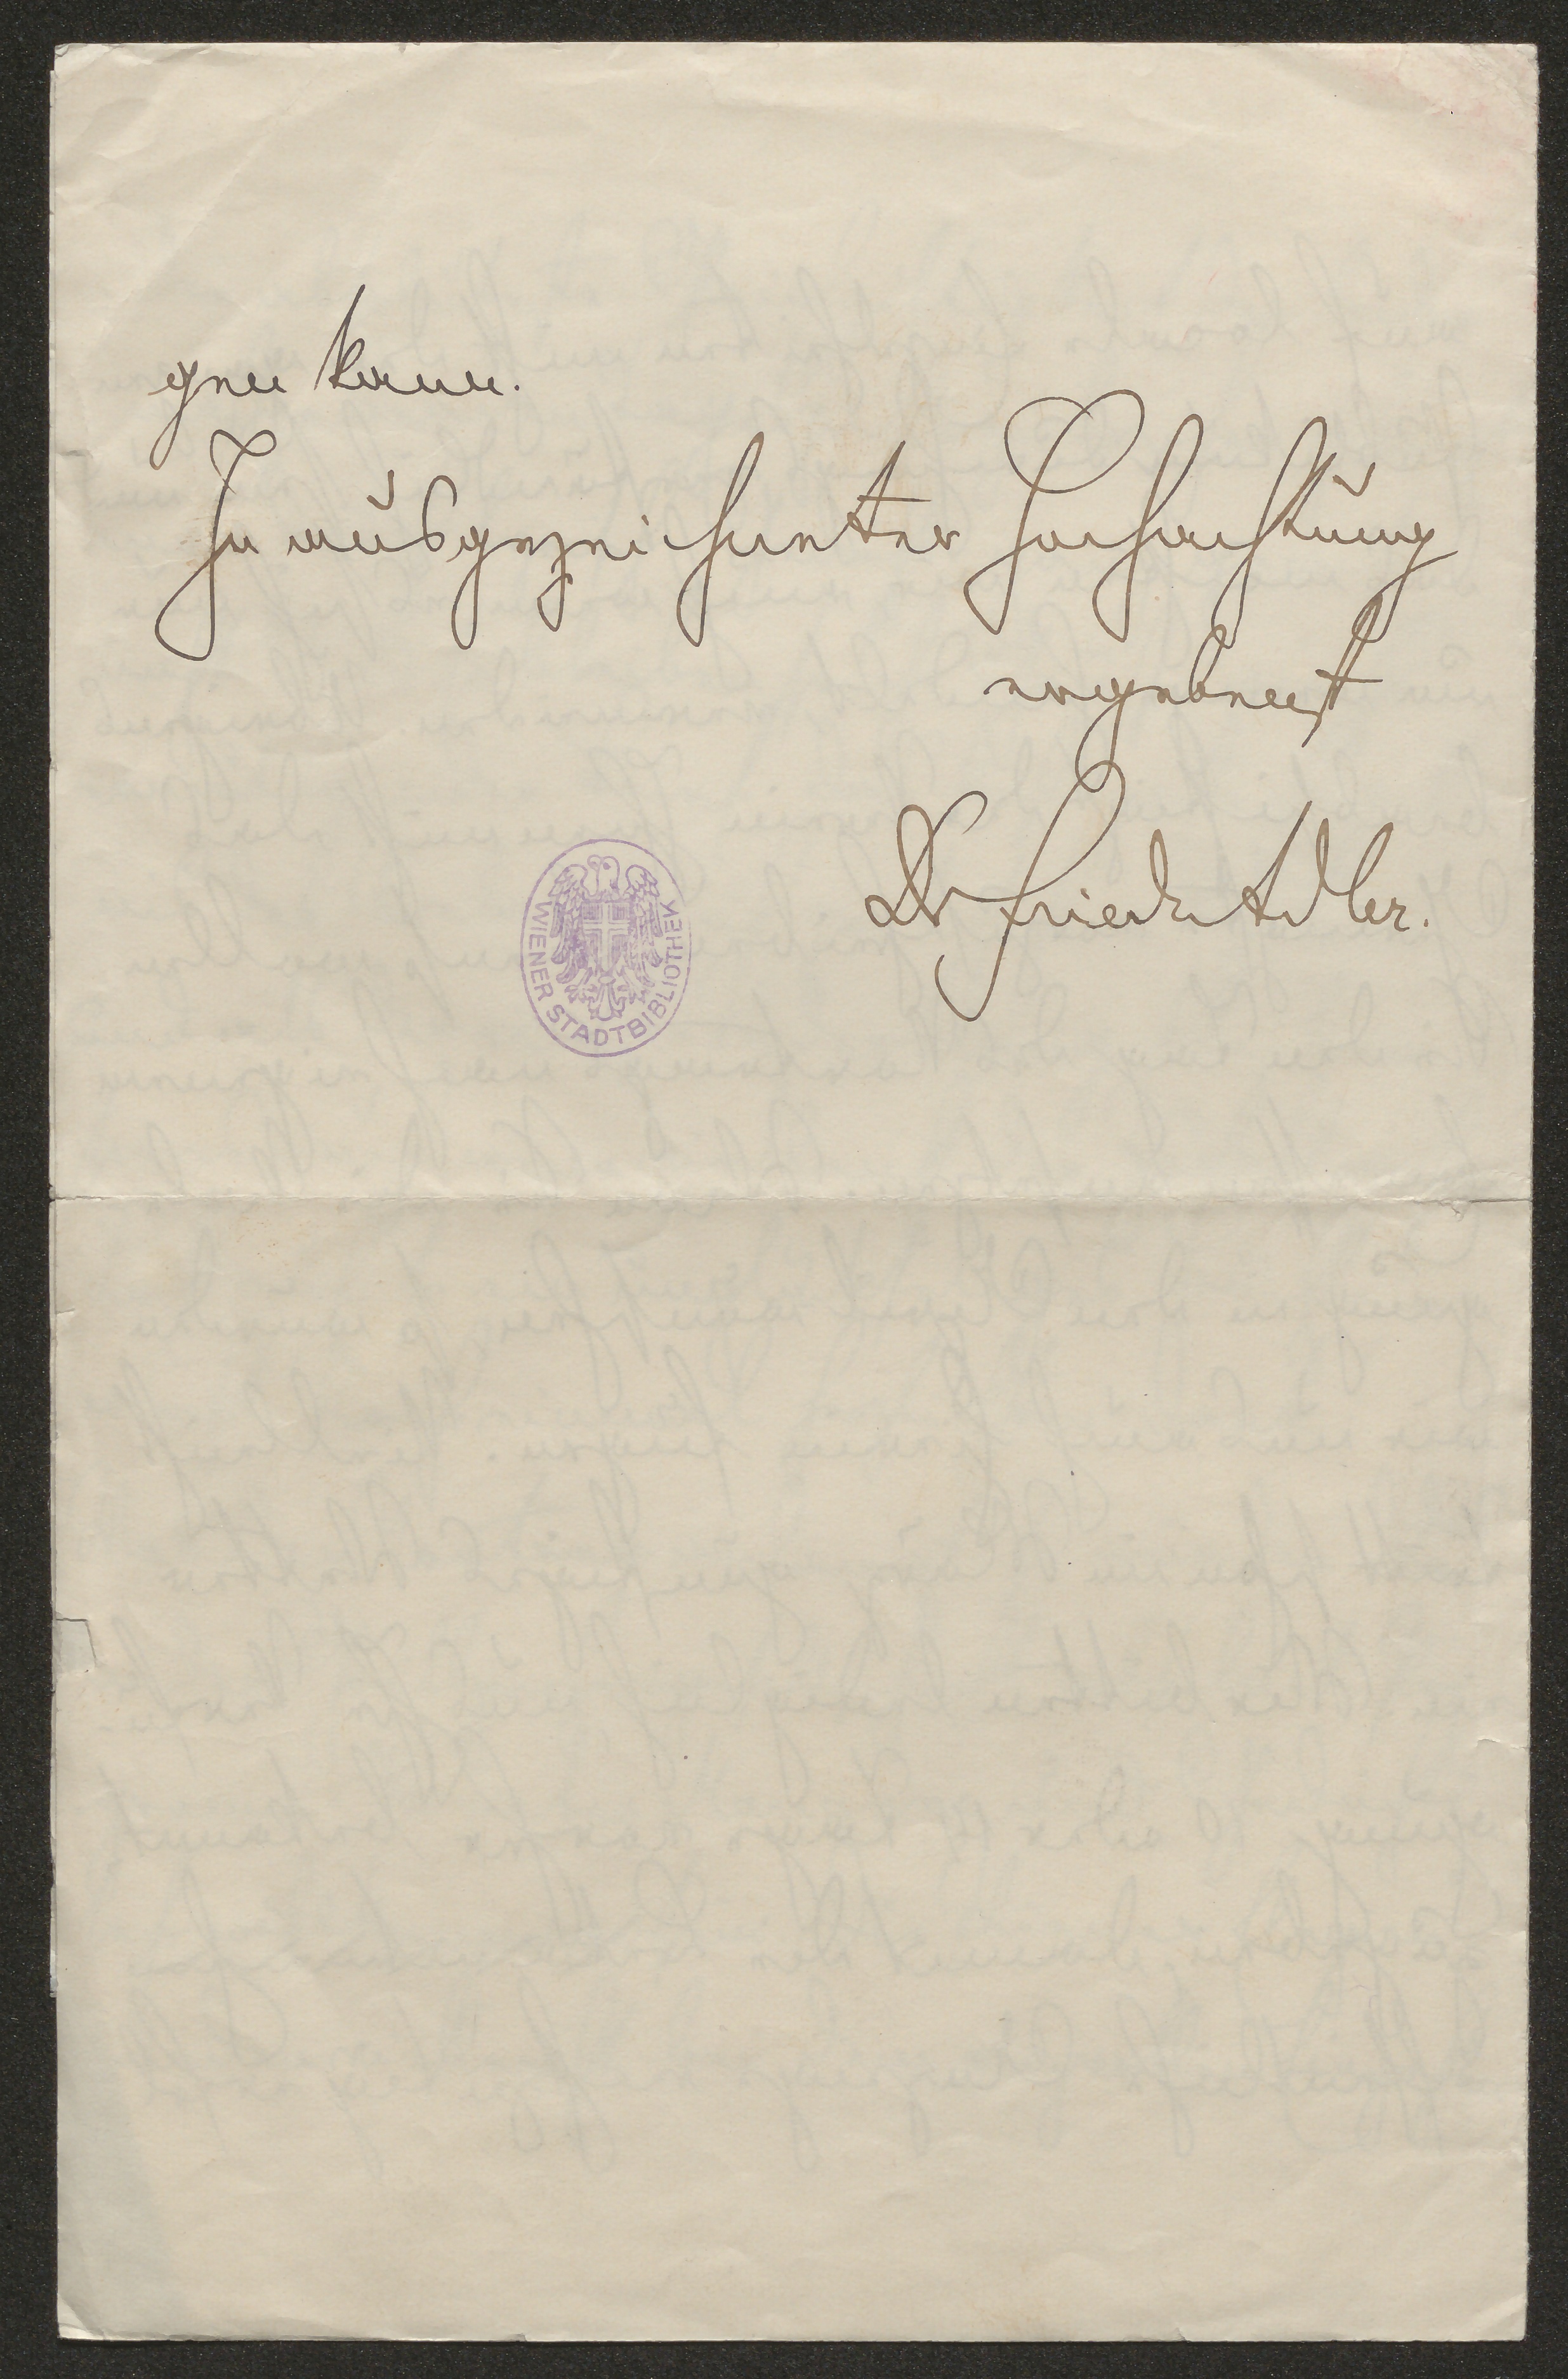 gen kann.
In ausgezeichneter Hochachtung
ergebenst
Dr Friedr Adler.
WIENER STADTBIBLIOTHEK